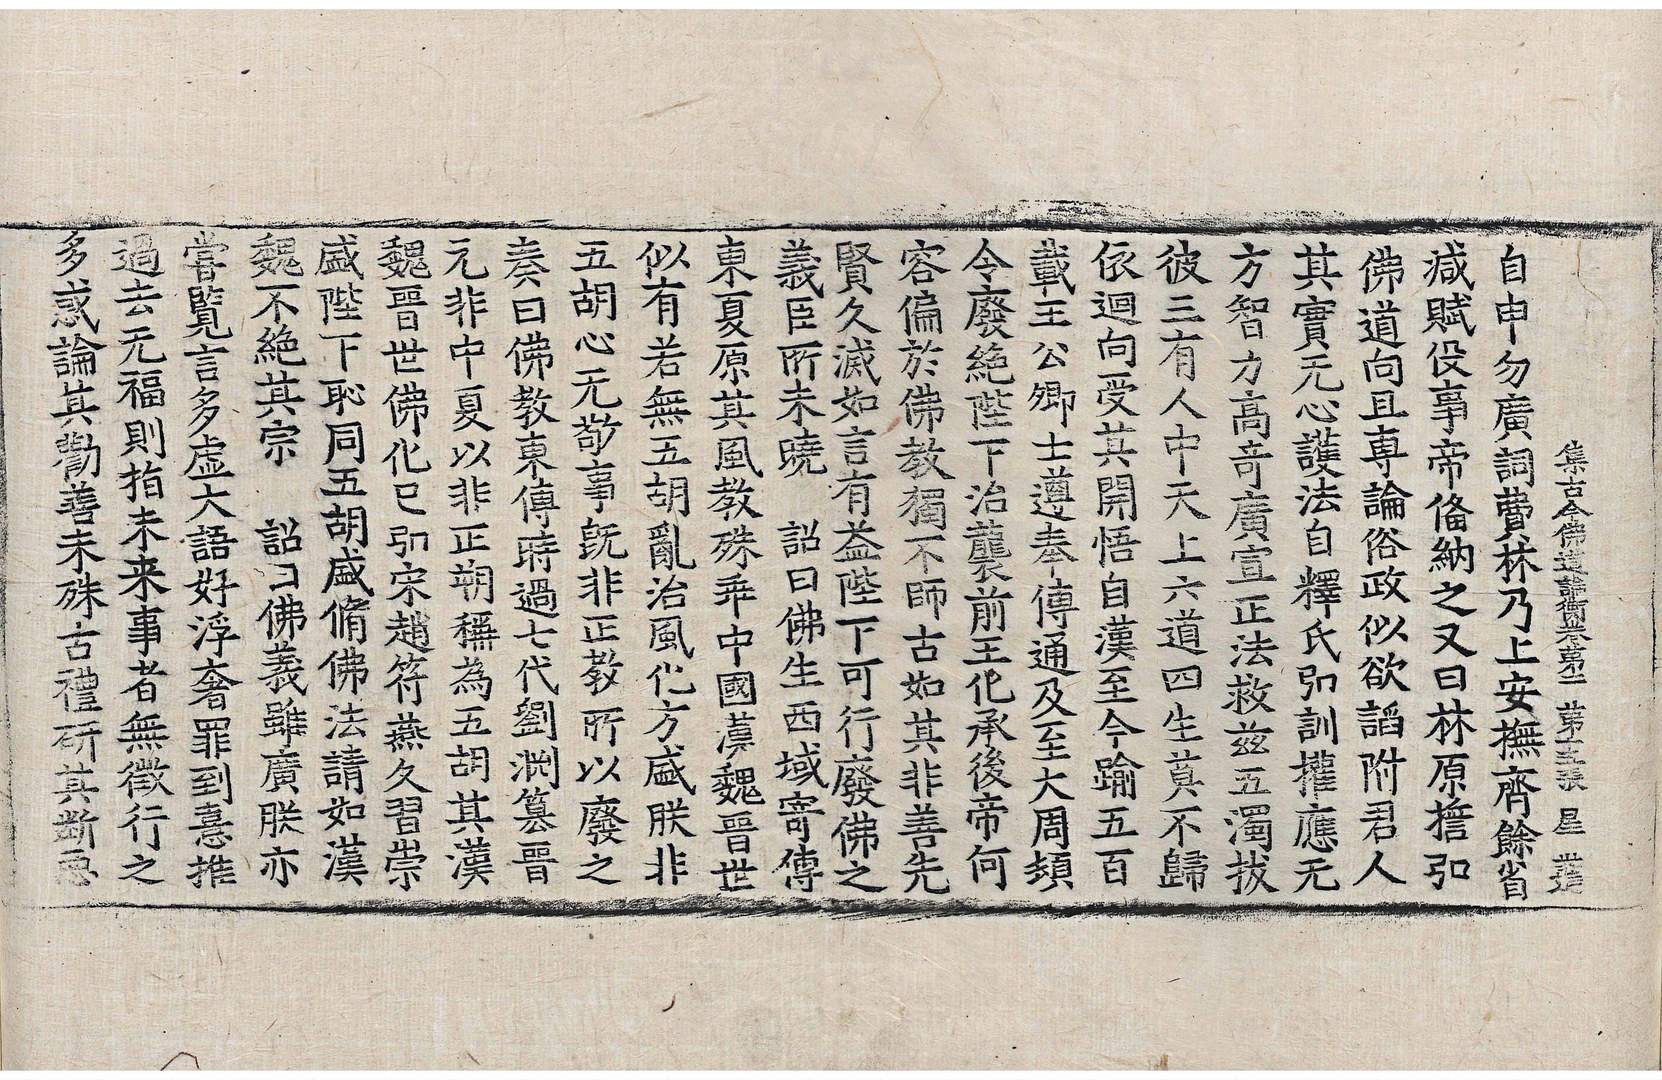 集古今佛道論衡卷第二 第十五張 星
自申勿廣詞費林乃上安撫齊餘省
减賦役事帝俻納之又曰林原擔引
佛道向且専論俗政似欲謟附君人
其實无心護法自釋氏弘訓權應无
方智力高奇廣宣正法救兹五濁拔
彼三有人中天上六道四生莫不歸
依迴向受其開悟自漢至今踰五百
載王公卿士遵奉傳通及至大周頓
令廢絶陛下治襲前王化承後帝何
容偏於佛教獨不師古如其非善先
賢久滅如言有益陛下可行廢佛之
義臣所未曉 詔曰佛生西域寄傳
東夏原其風教殊乖中國漢魏晉世
似有若無五胡亂治風化方盛朕非
五胡心无敬事旣非正教所以廢之
奏曰佛教東傳時過七代劉淵簒晉
元非中夏以非正朔稱為五胡其漢
魏晉世佛化已弘宋趙符燕久習崇
盛陛下恥同五胡盛脩佛法請如漢
魏不絶其宗 詔曰佛義雖廣朕亦
嘗覽言多虛大語好浮奢罪到憙推
過去无福則指未来事者無徵行之
多惑論其勸善未殊古禮研其断惡